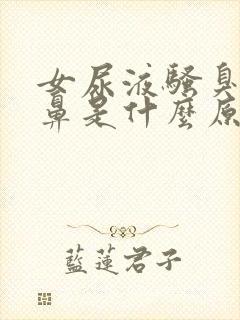 女尿液騷臭
鼻是什麼原
藍蓮君子